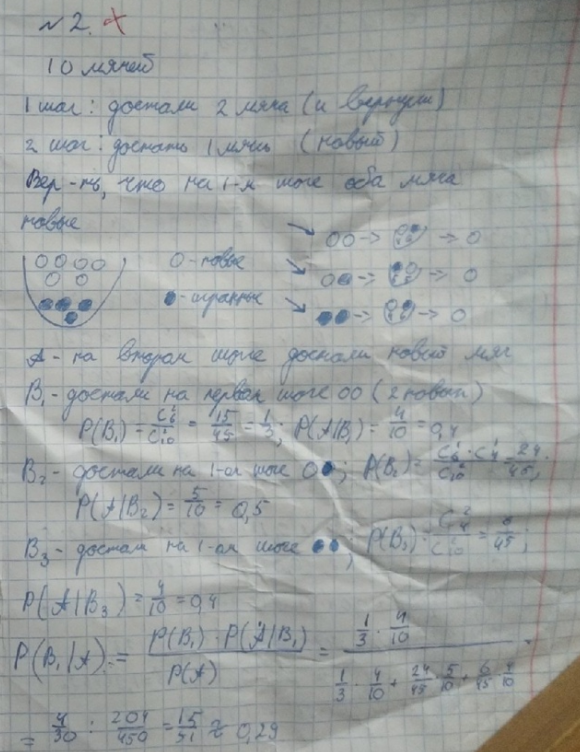 № 2.
10 мячей
1 шаг: достали 2 мяча (и вернули)
2 шаг: достать 1 мяч (новый)
Вер-ть, что на 1-м шаге оба мяча
новые
O - новые
● - игранные
A - на втором шаге достали новый мяч
B₁ - достали на первом шаге OO (2 новых)
P(B₁) = C₆²/C₁₀² = 15/45 = 1/3; P(A|B₁) = 4/10 = 0,4
B₂ - достали на 1-ом шаге O●; P(B₂) = C₆¹·C₄¹/C₁₀² = 24/45;
P(A|B₂) = 5/10 = 0,5
B₃ - достали на 1-ом шаге ●●; P(B₃) = C₄²/C₁₀² = 6/45;
P(A|B₃) = 4/10 = 0,4
P(B₁|A) = P(B₁)·P(A|B₁)/P(A) = (1/3 · 4/10)/(1/3 · 4/10 + 24/45 · 5/10 + 6/45 · 4/10) =
= 4/30 : 204/450 = 15/51 ≈ 0,29